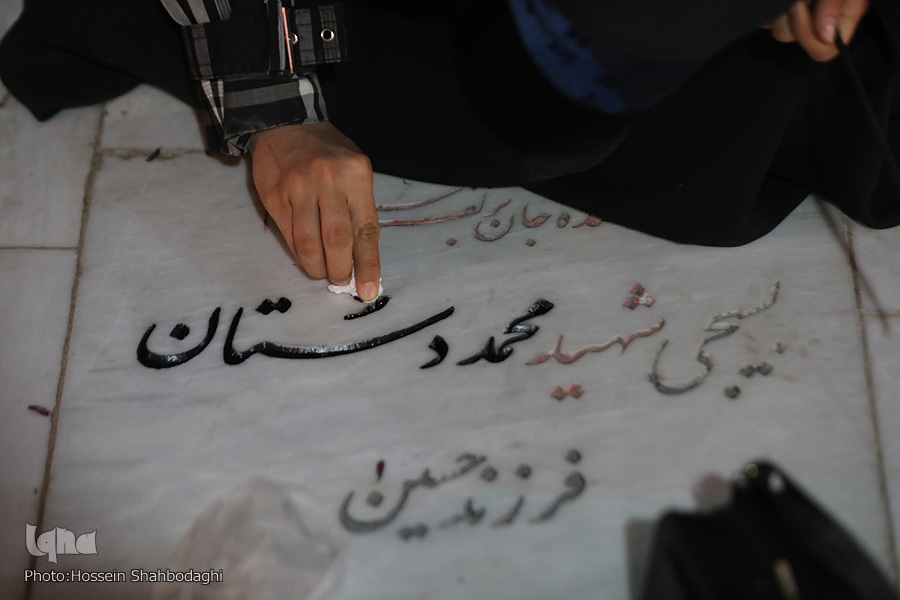 جان بر لقب
بسیجی شهید محمد دستان
فرزند حسین
iqna
Photo:Hossein Shahbodaghi